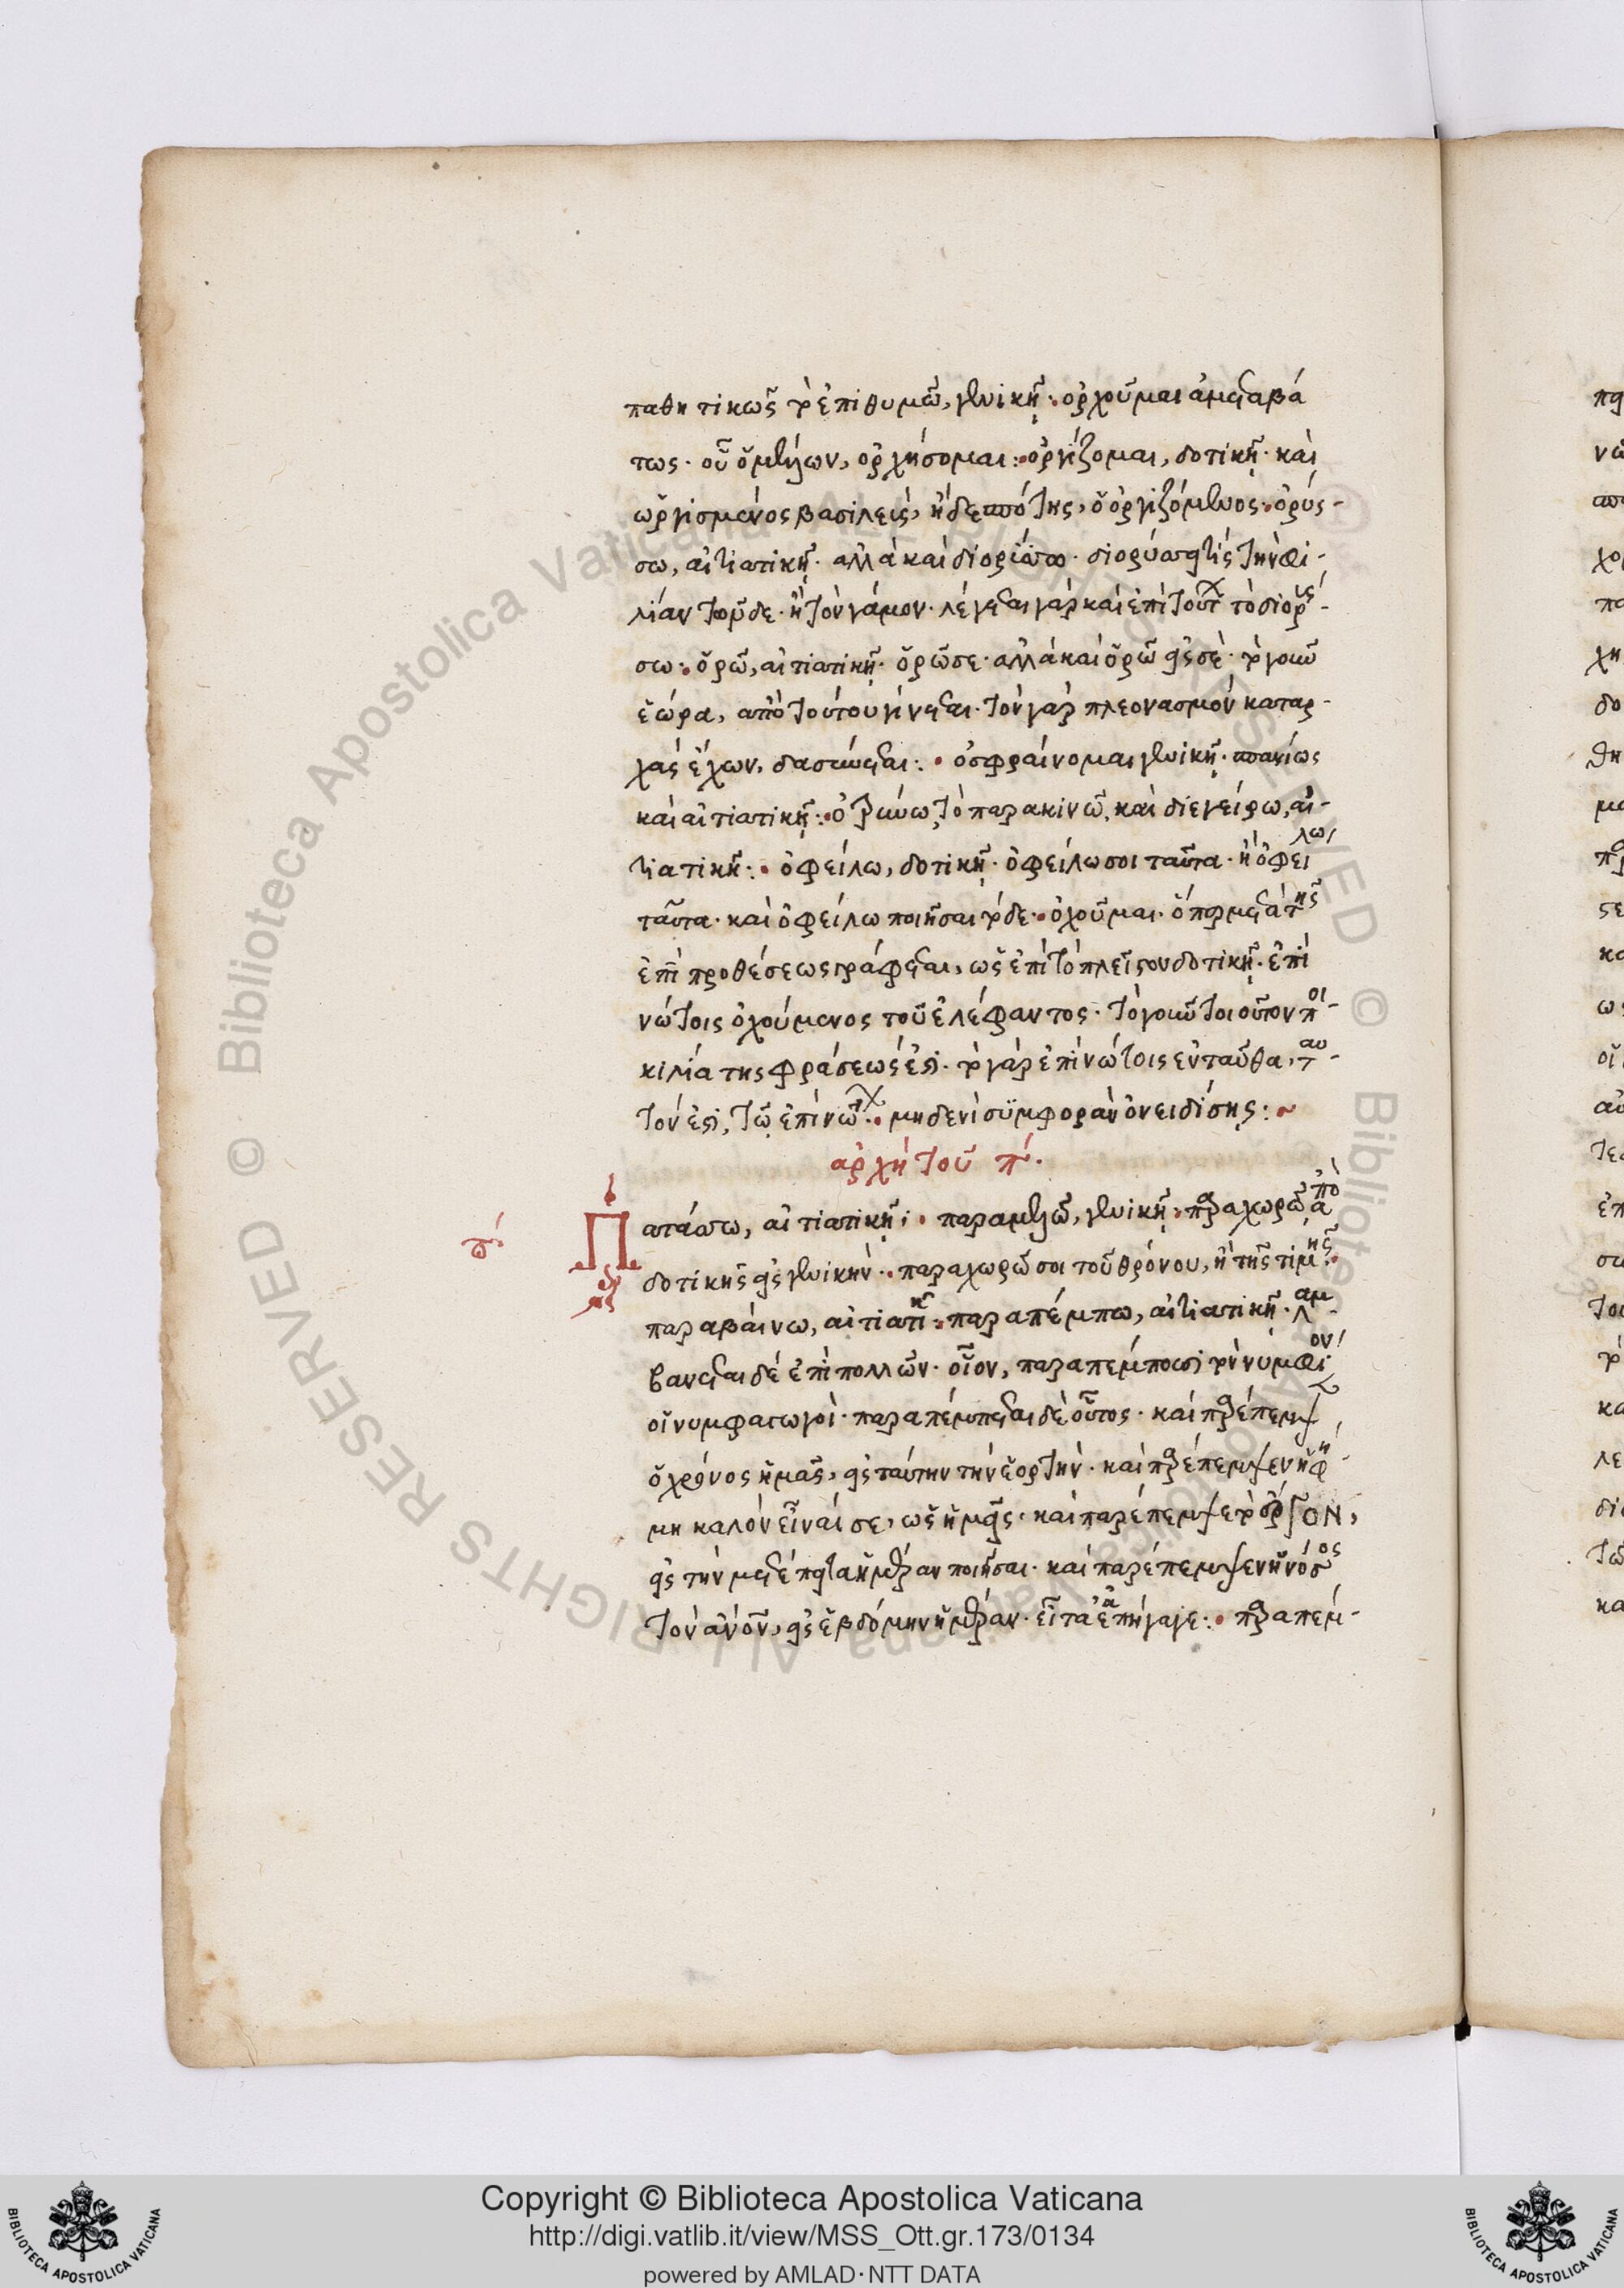 παθητικῶς τὸ ἐπιθυμῶ, γενικῇ· ὀρχοῦμαι ἀμεταβά
τως· οὗ ὁ μέλλων, ὀρχήσομαι: ὀργίζομαι, δοτικῇ· καὶ
ὠργισμένος βασιλεὺς, ἢ δεσπότης, ὁ ὀργιζόμενος· ὀρύσ-
σω, αἰτιατικῇ· ἀλλὰ καὶ διορύσσω· διορύσσει τίς τὴν φι-
λίαν τοῦδε· ἢ τὸν γάμον· λέγεται γὰρ καὶ ἐπὶ τούτ τὸ διορύσ-
σω· ὁρῶ, αἰτιατικῇ· ὁρῶ σε· ἀλλὰ καὶ ὁρῶ εἰς σὲ· τὸ γοῦν
ἑώρα, ἀπὸ τούτου γίνεται· τὸν γὰρ πλεονασμὸν καταρ-
χὰς ἔχων, δασύνεται: ὀσφραίνομαι γενικῇ· σπανίως
καὶ αἰτιατικῇ: ὀτρύνω, τὸ παρακινῶ, καὶ διεγείρω, αἰ-
τιατικῇ: ὀφείλω, δοτικῇ· ὀφείλω σοι ταῦτα· ἢ ὀφείλω
ταῦτα· καὶ ὀφείλω ποιῆσαι τόδε· ὀχοῦμαι· ὅπερ μετὰ τῆς
ἐπὶ προθέσεως γράφεται, ὡς ἐπὶ τὸ πλεῖστον δοτικῇ· ἐπὶ
νώτοις ὀχούμενος τοῦ ἐλέφαντος· τὸ γοῦν τοιοῦτον ποι-
κιλία της φράσεώς ἐστι· τὸ γὰρ ἐπὶ νώτοις ἐνταῦθα, ταυ-
τόν ἐστι, τῷ ἐπὶ νώτ· μηδενὶ συμφορὰν ὀνειδίσῃς:
ἀρχὴ τοῦ π·
π
Πατάσσω, αἰτιατικῇ: παραμελῶ, γενικῇ: παραχωρῶ ἀπὸ
δοτικῆς εἰς γενικὴν· παραχωρῶ σοι τοῦ θρόνου, ἢ τῆς τιμῆς:
παραβαίνω, αἰτιατικῇ: παραπέμπω, αἰτιατικῇ· λαμ-
βανεται δὲ ἐπὶ πολλῶν· οἷον, παραπέμπουσι τὸν νυμφίον
οἱ νυμφαγωγοὶ· παραπέμπεται δὲ οὗτος· καὶ παρέπεμψ
ὁ χρόνος ἡμᾶς, εἰς ταύτην τὴν ἑορτὴν· καὶ παρέπεμψεν ἡ φή-
μη καλὸν εἶναί σε, ὡς ἡμᾶς· καὶ παρέπεμψε τὸ ΟΝ,
εἰς τὴν μετέπειτα ἡμέραν ποιῆσαι· καὶ παρέπεμψεν ἡ νόσος
τὸν ἀνον, εἰς ἑβδόμην ἡμέραν· εἶτα ἐπήγαγε: παραπέμ-
Copyright © Biblioteca Apostolica Vaticana
http://digi.vatlib.it/view/MSS_Ott.gr.173/0134
powered by AMLAD·NTT DATA
BIBLIOTECA APOSTOLICA VATICANA
BIBLIOTECA APOSTOLICA VATICANA